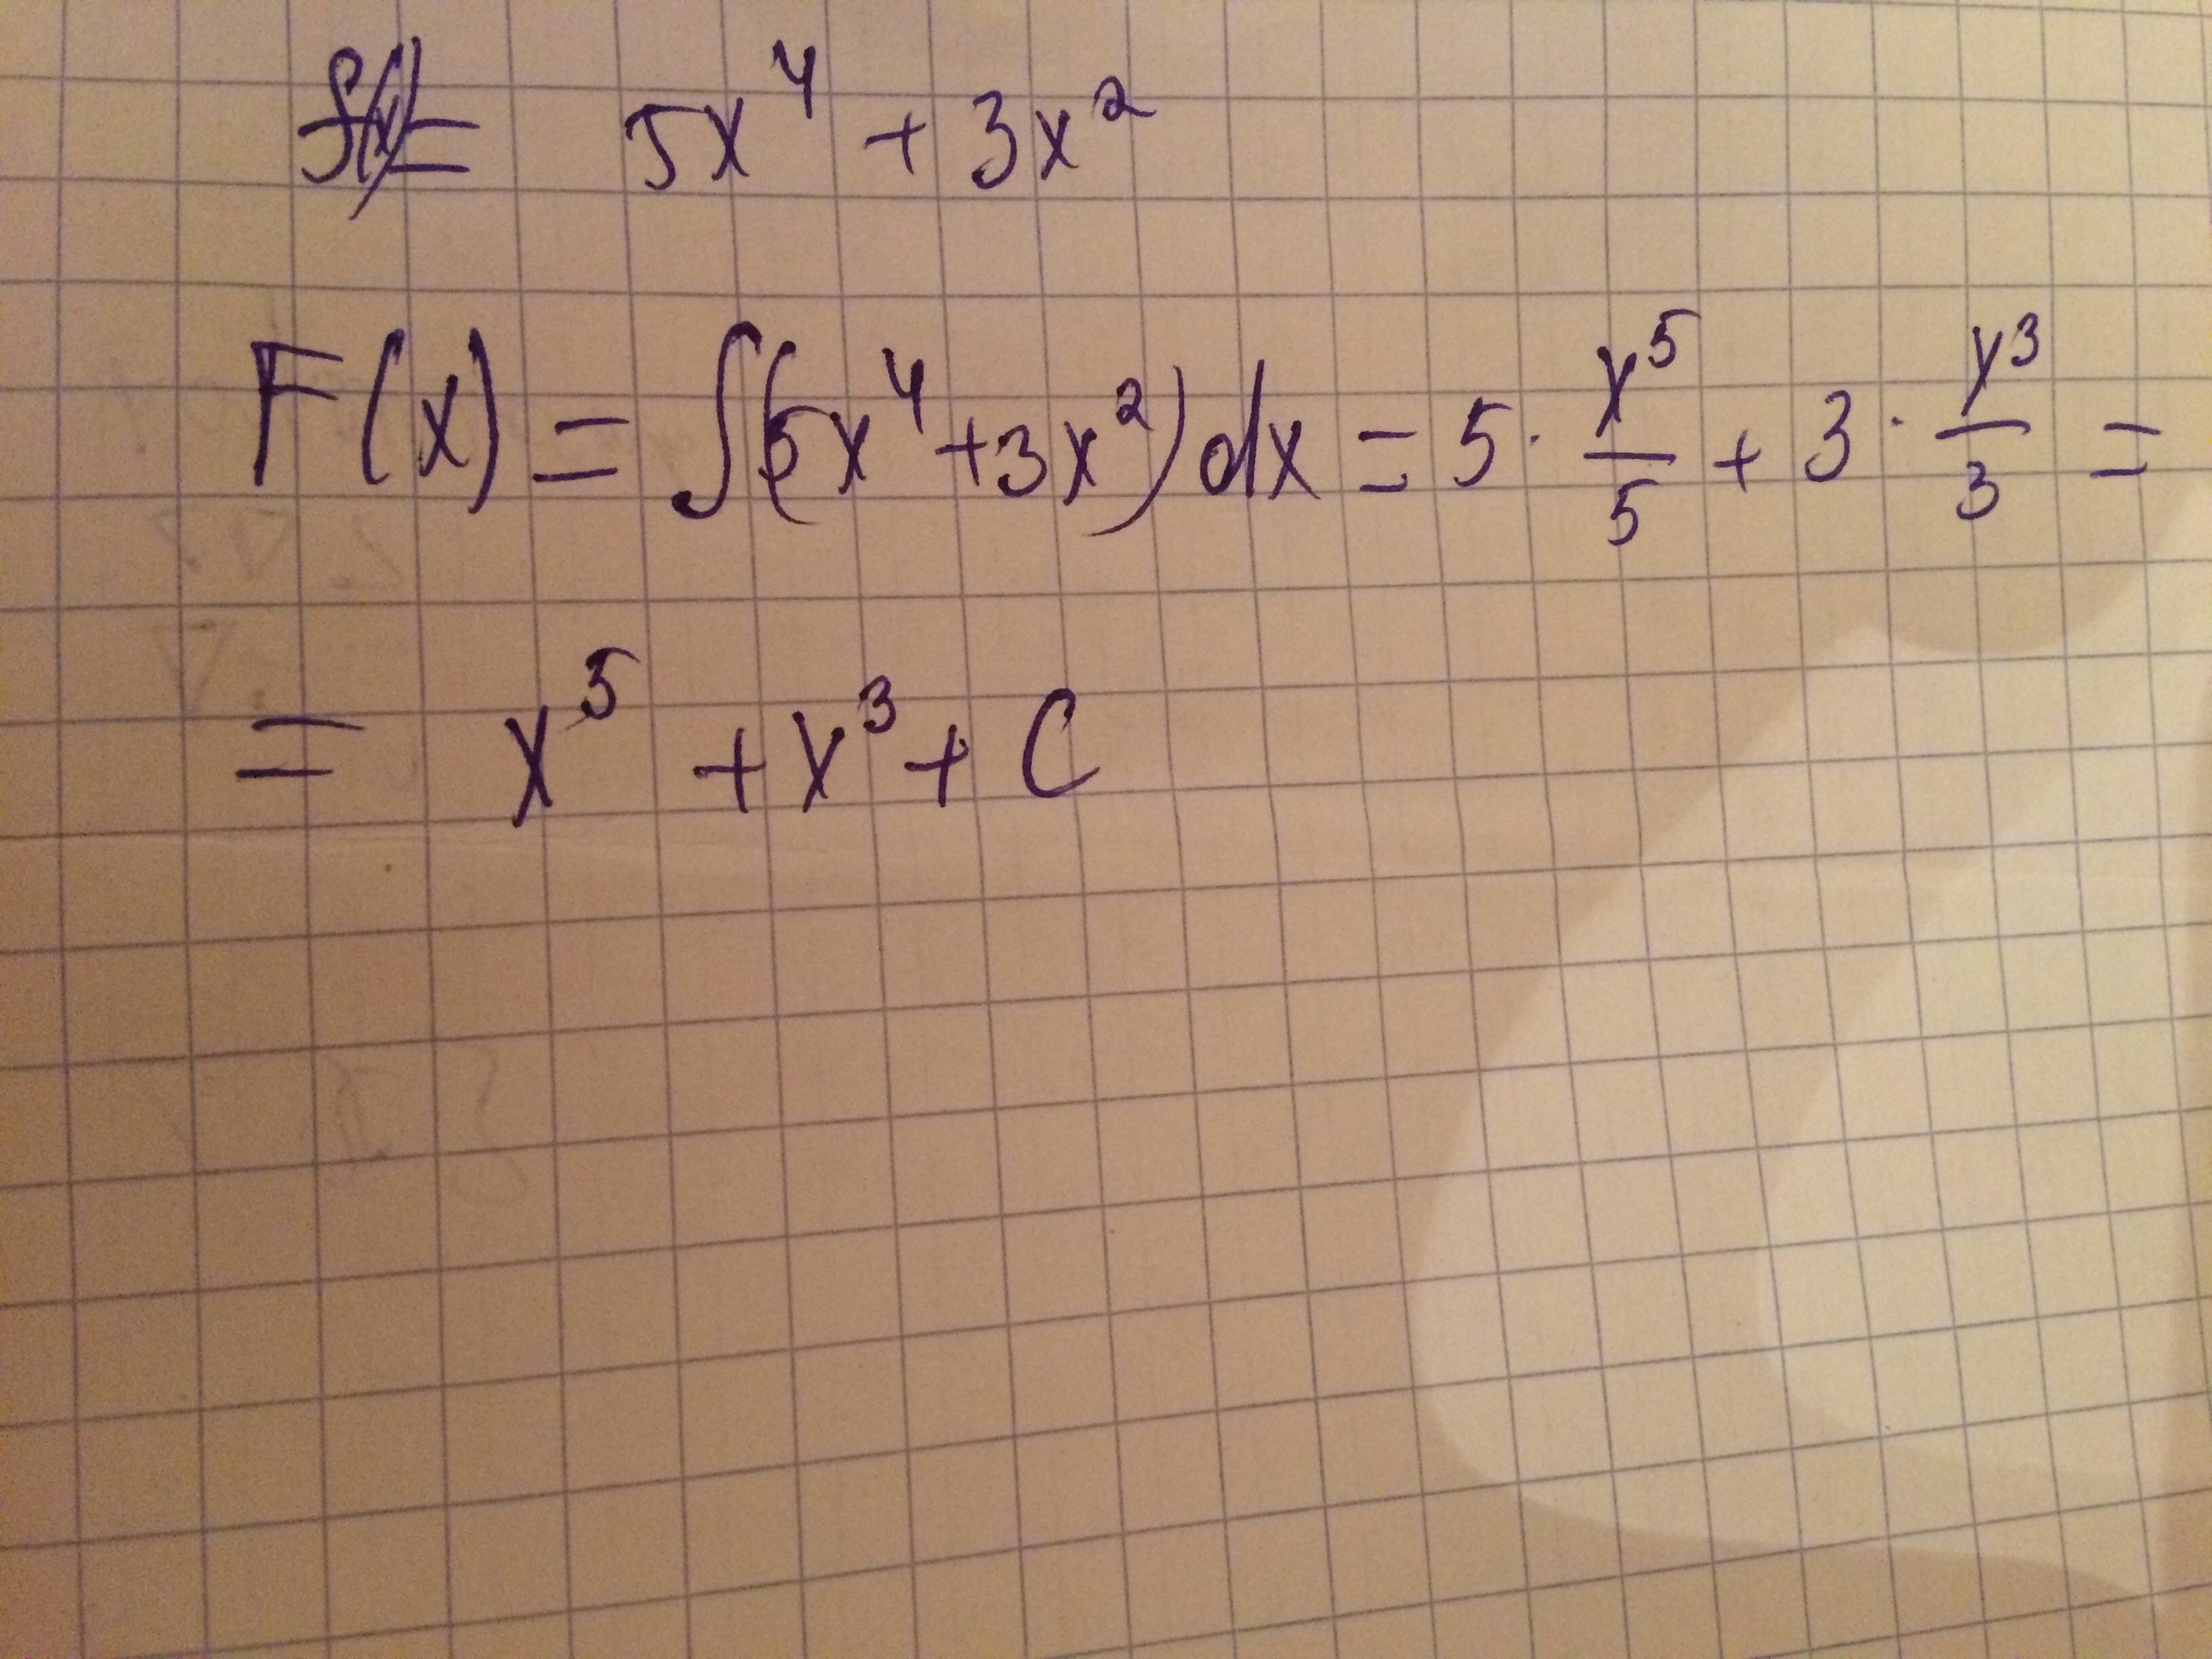 f(x)= 5x⁴ + 3x²
F(x) = ∫(5x⁴+3x²)dx = 5 · x⁵/5 + 3 · x³/3 =
= x⁵ + x³ + C